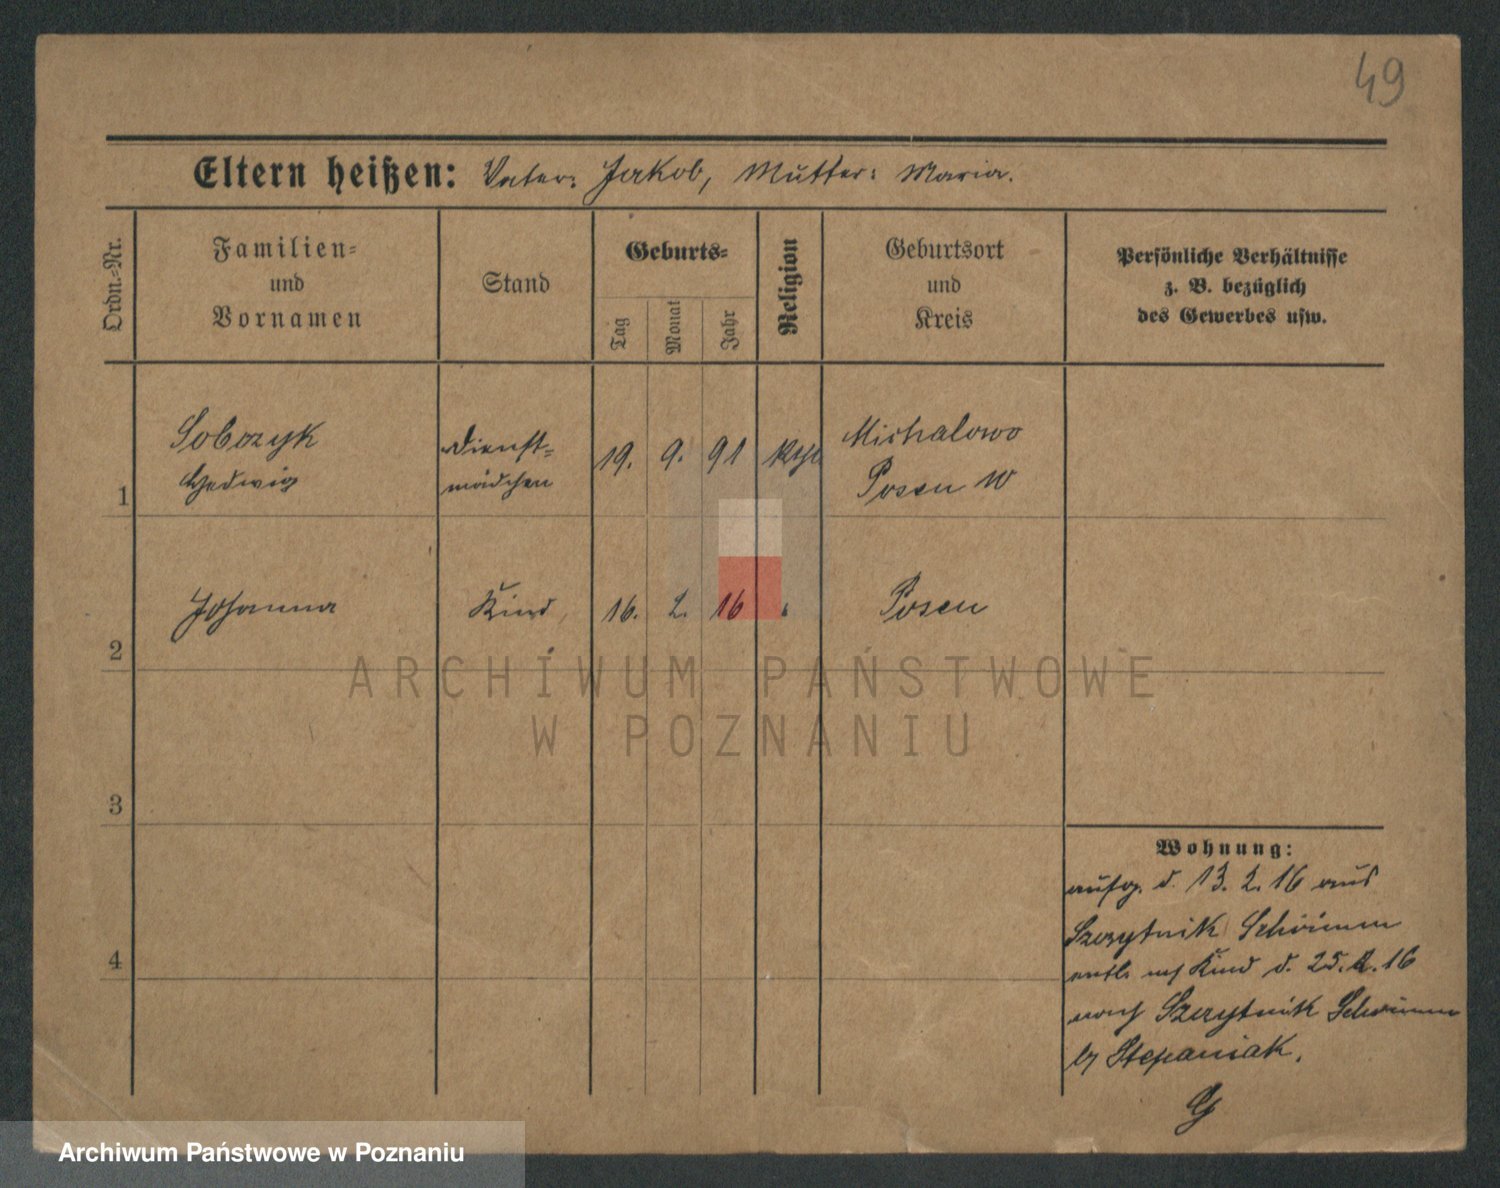 49
Eltern heißen: Vater: Jakob, Mutter: Maria.
Ordn.-Nr.
Familien-
und
Vornamen
Stand
Geburts-
Tag
Monat
Jahr
Religion
Geburtsort
und
Kreis
Persönliche Verhältnisse
z. B. bezüglich
des Gewerbes usw.
1
Sobczyk
Hedwig
Dienst-
mädchen
19. 9. 91
kath
Michalowo
Posen W
2
Johanna
Kind
16. 2. 16
Posen
3
4
Wohnung:
aufg. d. 13. 2. 16 aus
Szczytnik Schrimm
entl. Kind d. 25. 2. 16
nach Szczytnik Schrimm
Stepaniak.
ARCHIWUM PAŃSTWOWE
W POZNANIU
Archiwum Państwowe w Poznaniu